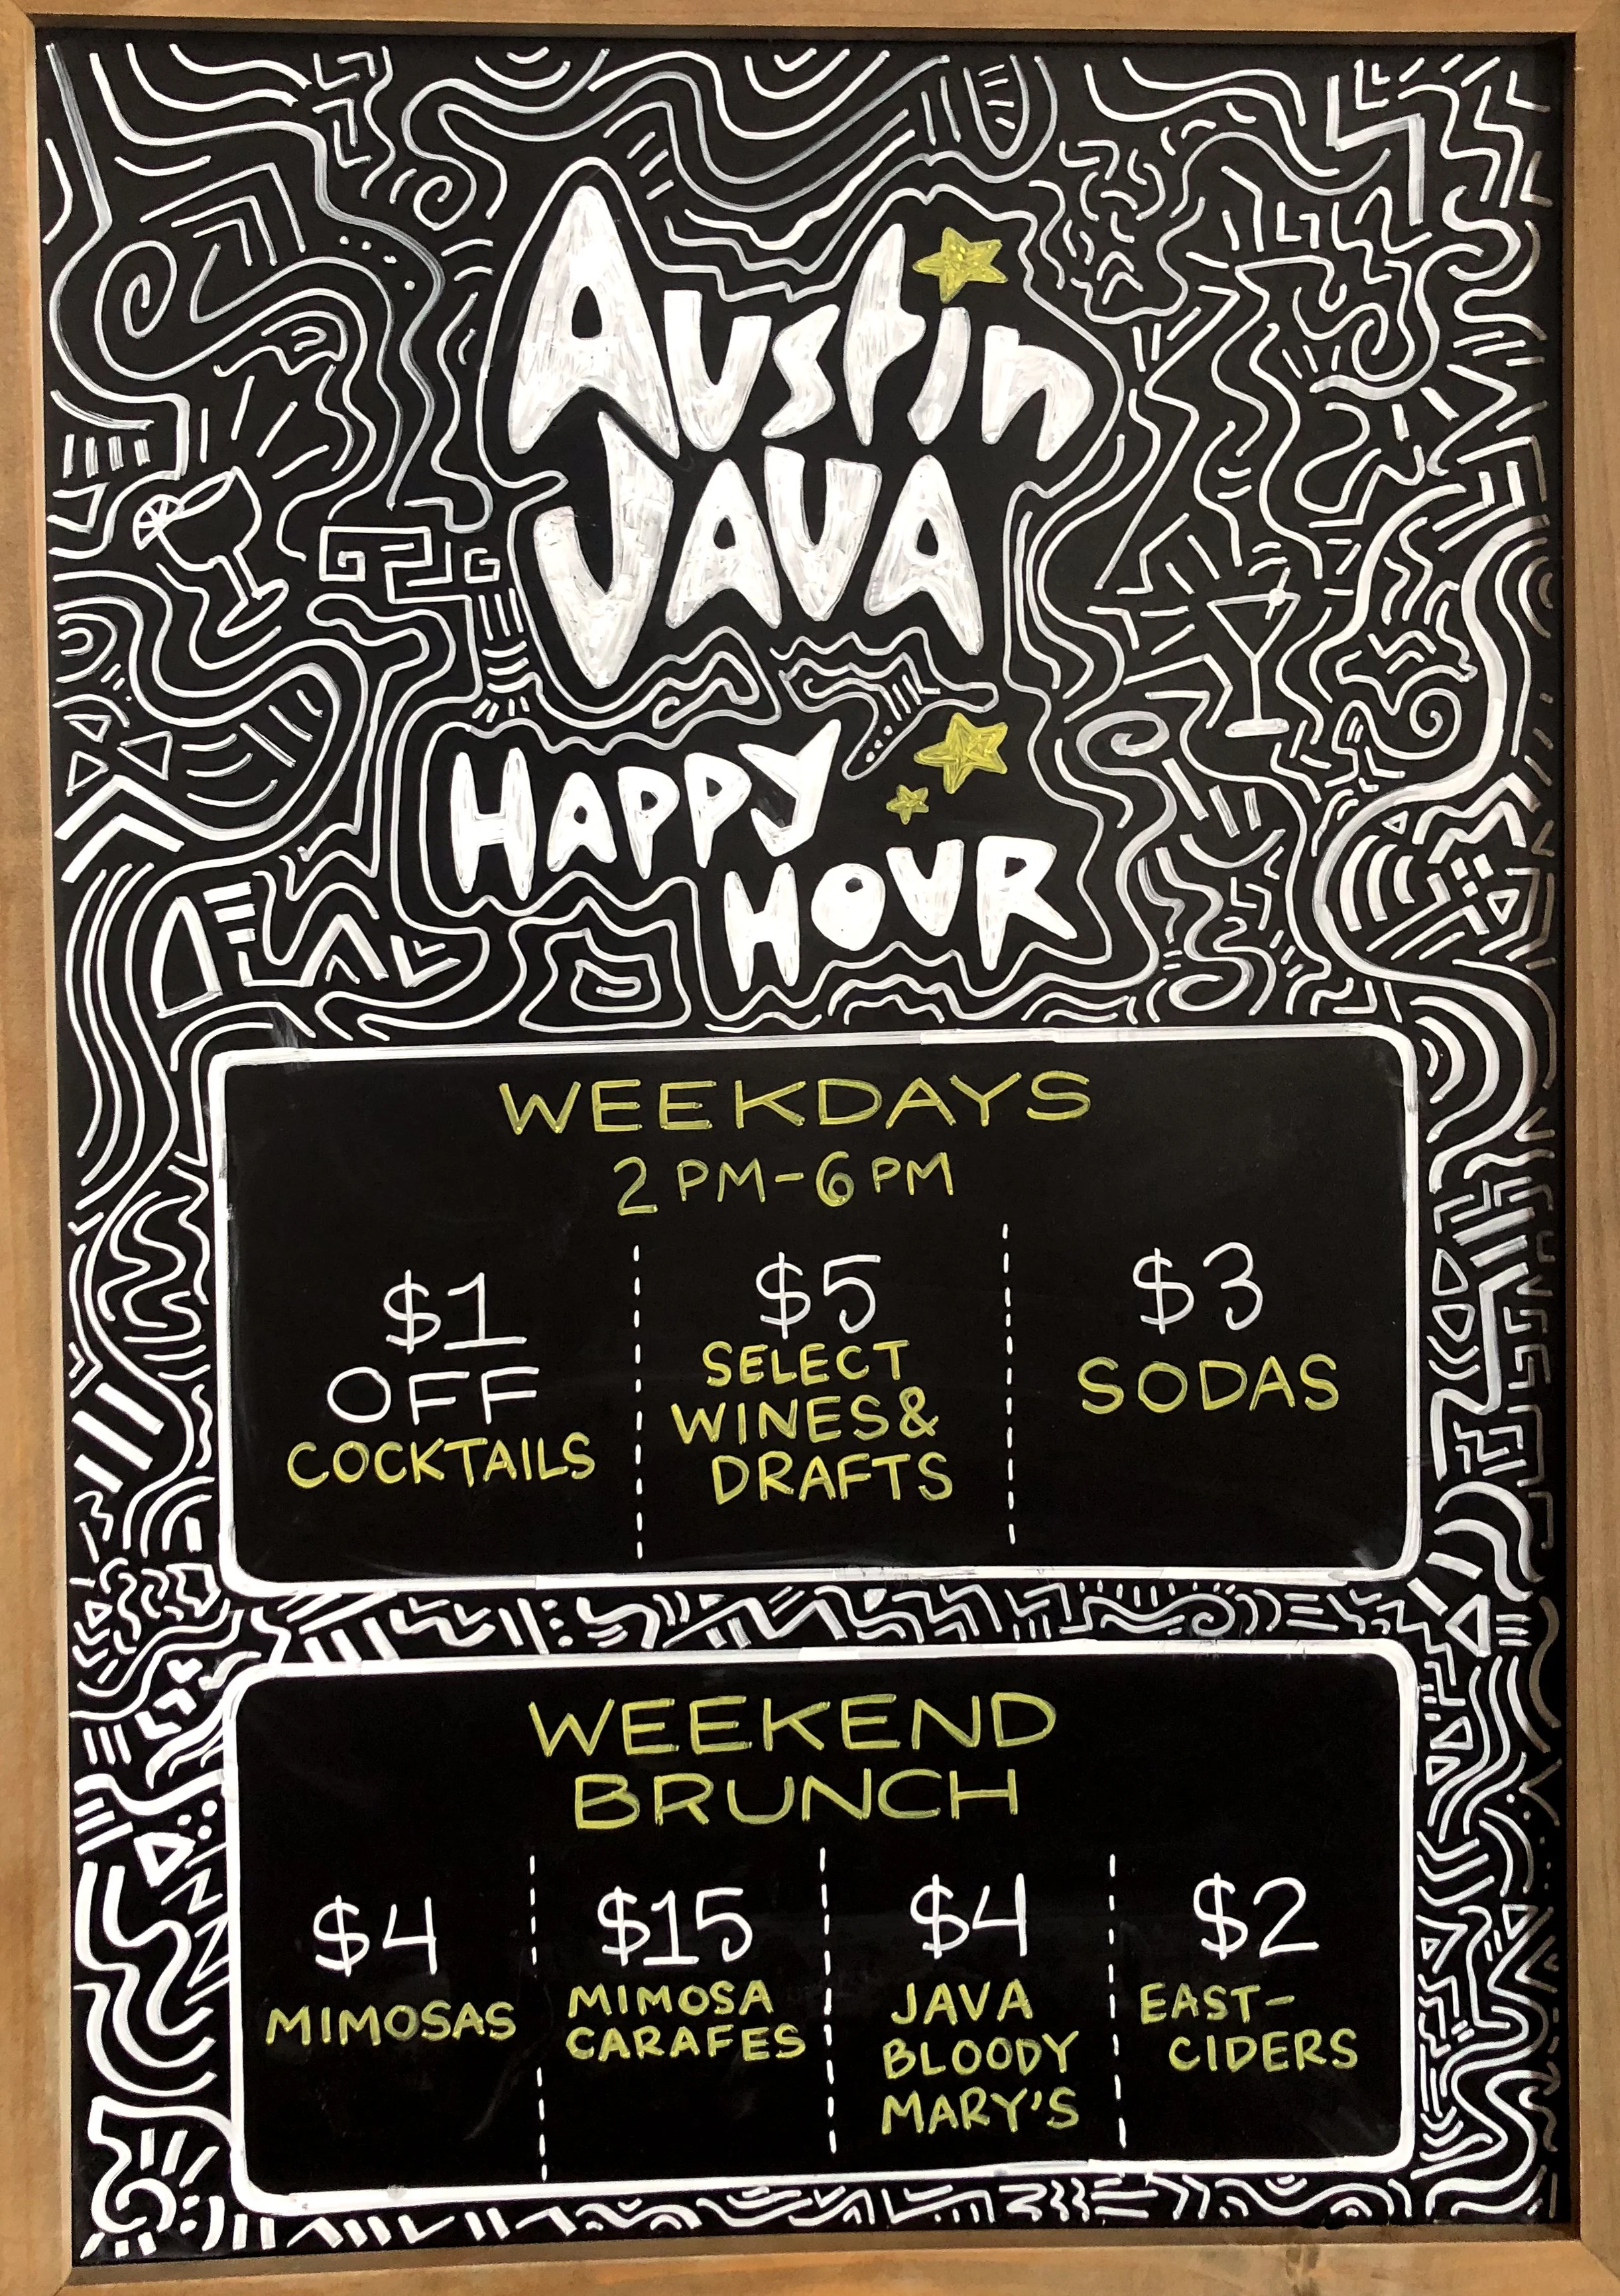 Austin
JAVA
HAPPY
HOUR
WEEKDAYS
2 PM-6 PM
$1
OFF
COCKTAILS
$5
SELECT
WINES &
DRAFTS
$3
SODAS
WEEKEND
BRUNCH
$4
MIMOSAS
$15
MIMOSA
CARAFES
$4
JAVA
BLOODY
MARY'S
$2
EAST-
CIDERS